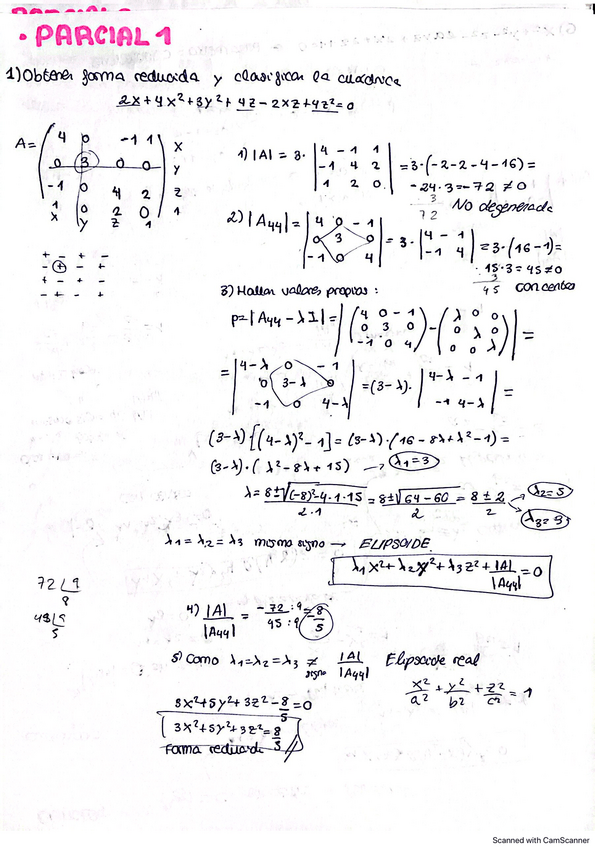 • PARCIAL 1
1) Obtener forma reducida y clasificar la cuádrica
2x+4x²+3y²+4z-2xz+4z²=0
A= ( 4 0 -1 1 ) x
0 3 0 0 y
-1 0 4 2 z
1 0 2 0 1
x y z 1
+ - + -
- + - +
+ - + -
- + - +
1) |A| = 3· | 4 -1 1 |
| -1 4 2 | = 3·(-2-2-4-16) =
| 1 2 0 |
-24·3=-72 ≠ 0
3
72
No degenerada
2) |A44| = | 4 0 -1 |
| 0 3 0 | = 3· | 4 -1 | = 3·(16-1)=
| -1 0 4 | | -1 4 |
15·3=45≠0
3
45
con centro
3) Hallar valores propios:
p=|A44-λI|= |( 4 0 -1 ) - ( λ 0 0 )| =
( 0 3 0 ) ( 0 λ 0 )
( -1 0 4 ) ( 0 0 λ )
= | 4-λ 0 -1 |
| 0 3-λ 0 | =(3-λ)· | 4-λ -1 | =
| -1 0 4-λ | | -1 4-λ |
(3-λ)[(4-λ)²-1]=(3-λ)·(16-8λ+λ²-1)=
(3-λ)·(λ²-8λ+15) → λ1=3
λ= 8±√(-8)²-4·1·15 / 2·1 = 8±√64-60 / 2 = 8±2 / 2
λ2=5
λ3=3
λ1=λ2=λ3 mismo signo → ELIPSOIDE
λ1x²+λ2y²+λ3z²+|A|/|A44|=0
72 | 9
8
45 | 9
5
4) |A|/|A44| = -72:9 / 45:9 = -8/5
5) Como λ1=λ2=λ3 ≠ signo |A|/|A44| Elipsoide real
x²/a² + y²/b² + z²/c² = 1
3x²+5y²+3z²-8/5=0
3x²+5y²+3z²=8/5
Forma reducida
Scanned with CamScanner